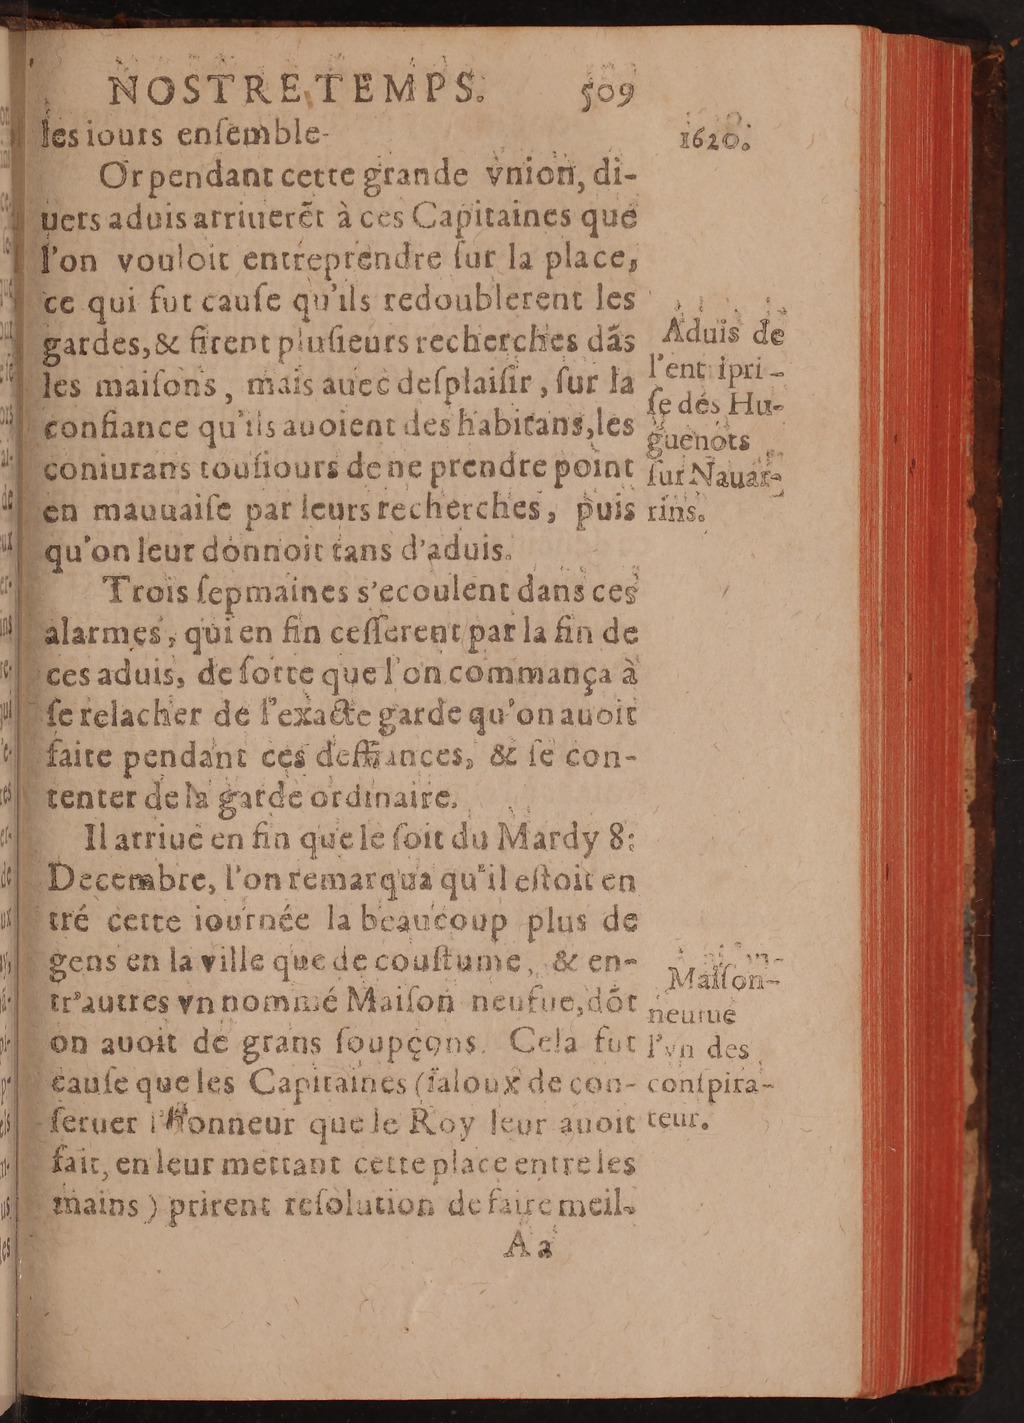 NOSTRE TEMPS. 509
les iours enſemble.
1620.
Or pendant cette grande vnion, di-
uers aduis arriuerẽt à ces Capitaines que
l'on vouloit entreprendre ſur la place,
ce qui fut cauſe qu'ils redoublerent les
gardes, & firent pluſieurs recherches dãs
les maiſons, mais auec deſplaiſir, ſur la
confiance qu'ils auoient des habitans, les
coniurans touſiours de ne prendre point
en mauuaiſe par leurs recherches, puis
qu'on leur donnoit tans d'aduis.
Aduis de
l'entripri-
ſe des Hu-
guenots
ſur Nauar-
rins.
Trois ſepmaines s'ecoulent dans ces
alarmes, qui en fin ceſſerent par la fin de
ces aduis, de ſorte que l'on commança à
ſe relacher de l'exacte garde qu'on auoit
faite pendant ces deffiances, & ſe con-
tenter de la garde ordinaire.
Il arriue en fin que le ſoir du Mardy 8.
Decembre, l'on remarqua qu'il eſtoit en
tré cette iournée la beaucoup plus de
gens en la ville que de couſtume, & en-
tr'autres vn nommé Maiſon neufue, dõt
on auoit de grans ſoupçons. Cela fut
cauſe que les Capitaines (ialoux de con-
ſeruer l'Honneur que le Roy leur auoit
fait, en leur mettant cette place entre les
mains) prirent reſolution de faire meil-
Maiſon-
neufue
l'vn des
conſpira-
teur.
Aa